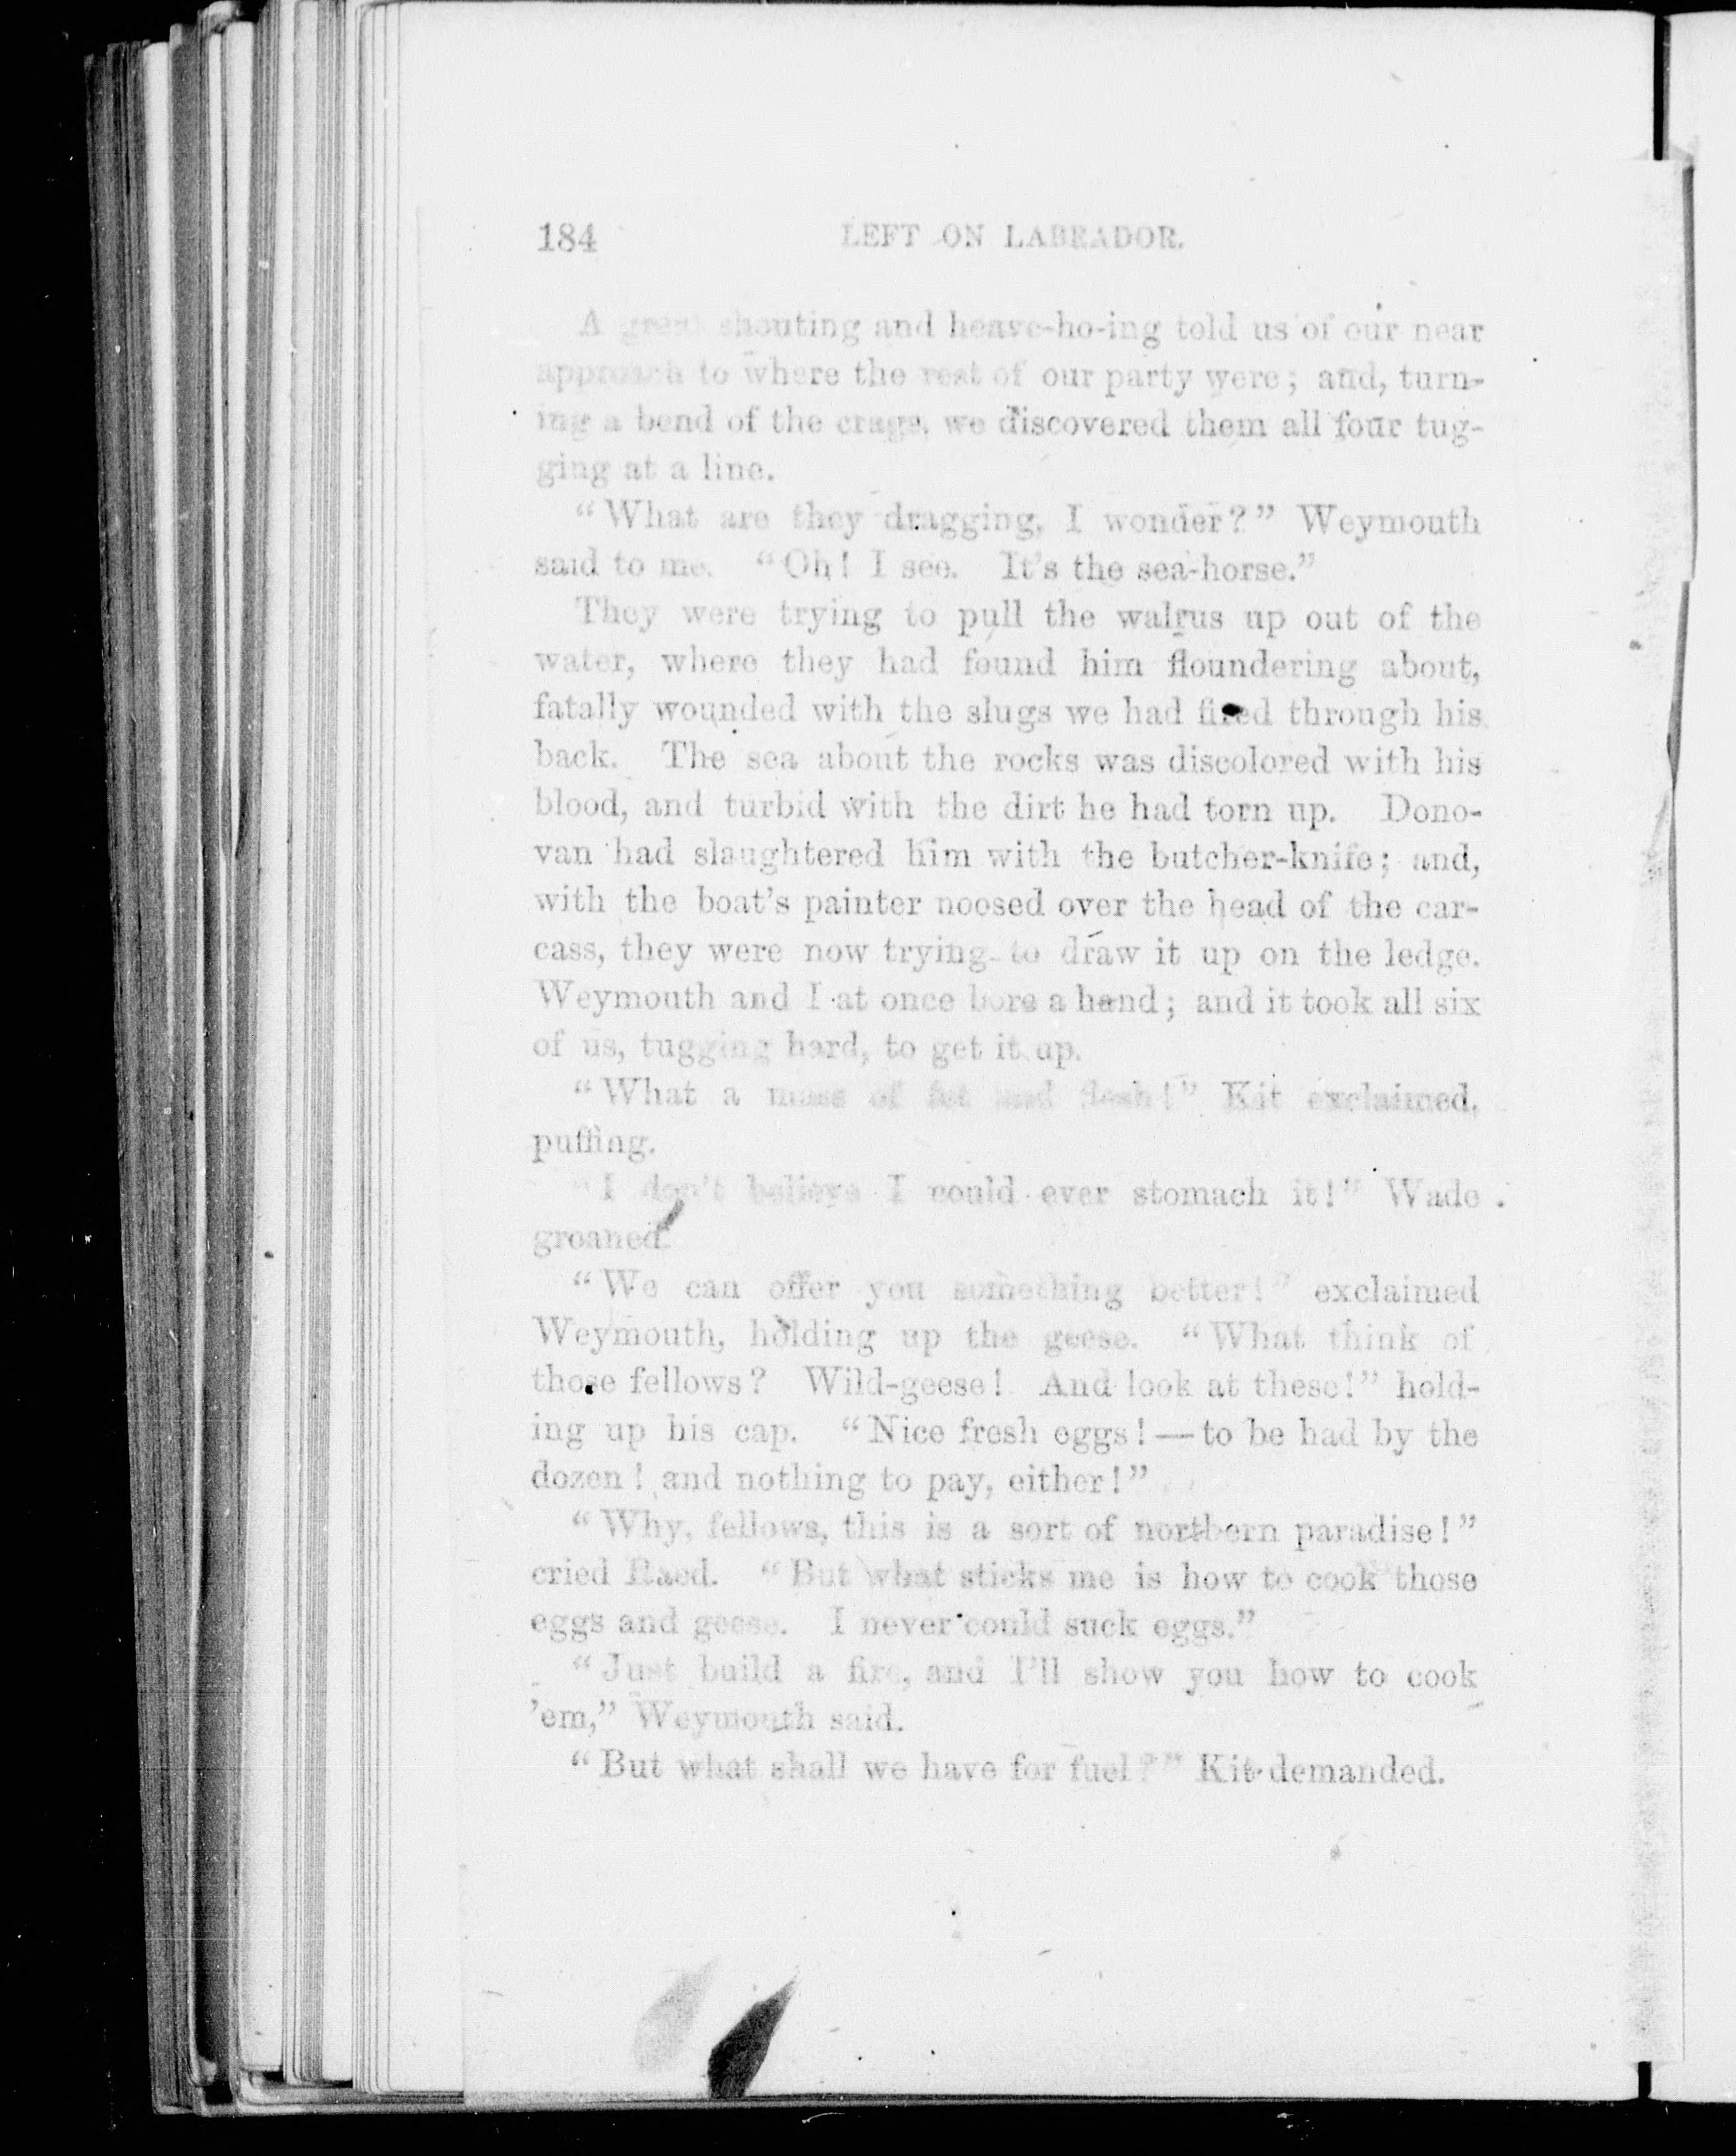 184 LEFT ON LABRADOR.
A great shouting and heave-ho-ing told us of our near
approach to where the rest of our party were; and, turn-
ing a bend of the crags, we discovered them all four tug-
ging at a line.
“What are they dragging, I wonder?” Weymouth
said to me. “Oh! I see. It's the sea-horse.”
They were trying to pull the walrus up out of the
water, where they had found him floundering about,
fatally wounded with the slugs we had fired through his
back. The sea about the rocks was discolored with his
blood, and turbid with the dirt he had torn up. Dono-
van had slaughtered him with the butcher-knife; and,
with the boat's painter noosed over the head of the car-
cass, they were now trying to draw it up on the ledge.
Weymouth and I at once bore a hand; and it took all six
of us, tugging hard, to get it up.
“What a mass of fat and flesh!” Kit exclaimed,
puffing.
“I don't believe I could ever stomach it!” Wade
groaned.
“We can offer you something better!” exclaimed
Weymouth, holding up the geese. “What think of
those fellows? Wild-geese! And look at these!” hold-
ing up his cap. “Nice fresh eggs!—to be had by the
dozen! and nothing to pay, either!”
“Why, fellows, this is a sort of northern paradise!”
cried Raed. “But what sticks me is how to cook those
eggs and geese. I never could suck eggs.”
“Just build a fire, and I'll show you how to cook
'em,” Weymouth said.
“But what shall we have for fuel?” Kit demanded.